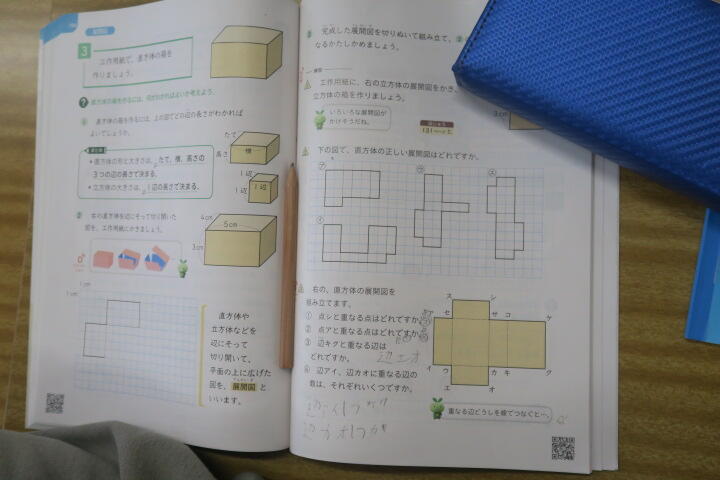 3
工作用紙で、直方体の箱を
作りましょう。
? 直方体の箱を作るには、何がわかればよいか考えよう。
① 直方体の箱を作るには、上の図でどの辺の長さがわかれば
よいでしょうか。
たて
横
高さ
まとめ
・直方体の形と大きさは、たて、横、高さの
3つの辺の長さで決まる。
・立方体の大きさは、1辺の長さで決まる。
1辺
1辺
1辺
② 右の直方体を辺にそって切り開いた
図を、工作用紙にかきましょう。
4cm
5cm
3cm
1cm
1cm
直方体や
立方体などを
辺にそって
切り開いて、
平面の上に広げた
図を、展開図と
いいます。
③ 完成した展開図を切りぬいて組み立て、
なるかたしかめましょう。
工作用紙に、右の立方体の展開図をかき、
立方体の箱を作りましょう。
いろいろな展開図が
かけそうだね。
3cm
131ページ
下の図で、直方体の正しい展開図はどれですか。
㋐
㋑
㋒
㋓
右の、直方体の展開図を
組み立てます。
① 点シと重なる点はどれですか。
② 点アと重なる点はどれですか。
③ 辺キクと重なる辺は
どれですか。
辺エオ
④ 辺アイ、辺カオに重なる辺の
数は、それぞれいくつですか。
ス シ
ア セ サ コ ケ
イ ウ カ キ ク
エ オ
重なる辺どうしを線でつなぐと…。